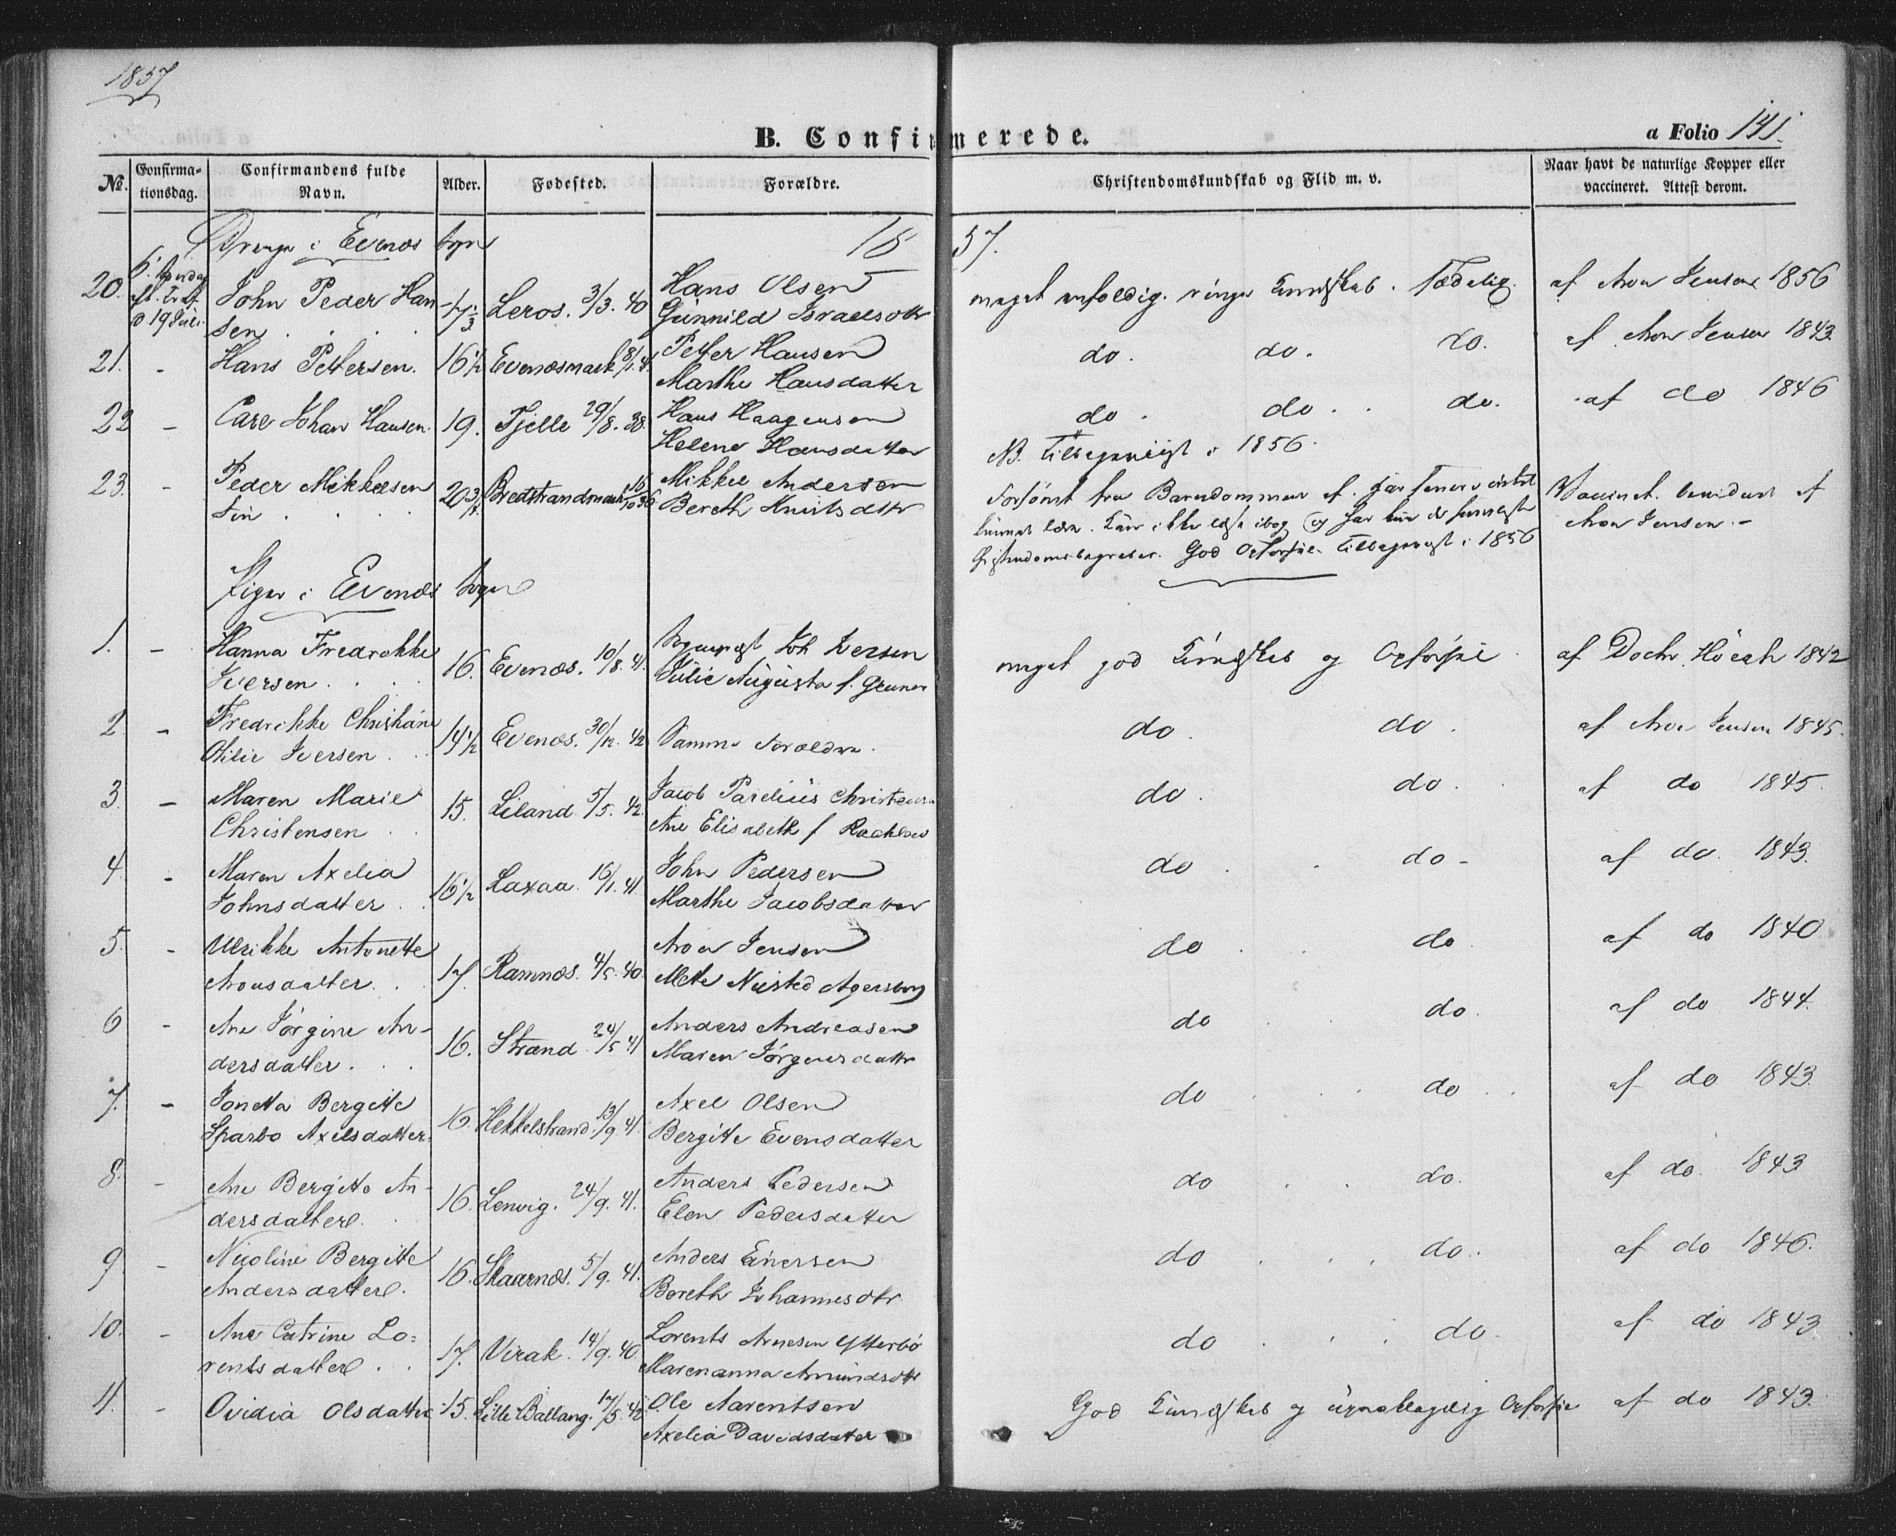 1857
B. Confirmerede.
a Folio 141.
No. Confirma-tionsdag. Confirmandens fulde Navn. Alder. Fødested. Forældre. Christendomskundskab og Flid m. v. Naar havt de naturlige Kopper eller vaccineret. Attest derom.
Drenge i Evenæs Sogn 1857.
6. Søndag
20. John Peder Han- 17 1/3 Leros. 3/3. 40 Hans Olsen meget enfoldig. ringe Kundskab. Sædelig. af Aron Jensen 1856
19 Juli. sen Gunnild Israelsdtr
21. - Hans Pettersen. 16 1/2 Evenæsmark Petter Hansen do. do. do. af Aron Jensen 1843.
Marthe Hansdatter
22 - Carl Johan Hansen. 19. Tjelle 29/8. 38. Hans Haagensen do. do. do. af do 1846
Helene Hansdatter NB. 1856.
23. - Peder Mikkelsen Bredstrandmark Mikkel Andersen Forsømt fra Barndommen af.
Berethe Knutsdtr lære. Kan ikke læse i bog og har kun de Aron Jensen. -
Christendomsbegreber. God Opførsel. i 1856
Piger i Evenæs Sogn
1. - Hanna Fredrikke 16. Evenæs. 10/8. 41. Sognepræst Joh Iversen meget god Kundskab og Opførsel. af Doctr. Höegh 1842
Iversen Julie Augusta f. Gruner
2 - Fredrikke Christiane 14 1/2 Evenæs. 30/12. 42 Samme Forældre. do. do. af Aron Jensen 1845.
Otilie Iversen
3. - Maren Marie 15. Liland 5/5. 42. Jacob Parelius Christensen do. do. af do 1845.
Christensen Ane Elisabeth f
4 - Maren Axelia 16 1/2 Laxaa. 16/1. 41. John Pedersen do. do - af do. 1843.
Johnsdatter Marthe Jacobsdatter
5. - Ulrikke Antonette 17. Ramnæs. 4/5. 40. Aron Jensen do do af do 1840
Aronsdatter. Mette Nüsted Agersborg
6 - Ane Jørgine An- 16. Strand 24/5 41 Anders Andreasen do do. af do 1844.
dersdatter. Maren Jørgensdattr
7. - Jonetta Bergitte 16 Hekkelstrand. 13/9. 41. Axel Olsen do do af do 1843.
Sparbo Axelsdatter. Bergitte Evensdatter
8. - Ane Bergitte An- 16. Lenvig. 24/9. 41. Anders Pedersen do do. af do. 1843
dersdatter. Elen Pedersdatter
9. - Nicoline Bergitte 16. Skaarnæs. 5/9. 41. Anders Einersen do do. af do 1846.
Andersdatter. Bereth Johannesdtr
10. - Ane Catrine Lo= 17. Virak. 14/9. 40. Lorents Arnesen Ytterbø do do. af do 1843
rentsdatter. Marenanna Amundsdtr
11. - Ovidia Olsdatter 15. Lille Ballang. 17/5. 42. Ole Aarentsen God Kundskab og Opførsel af do 1843.
Axelia Davidsdatter